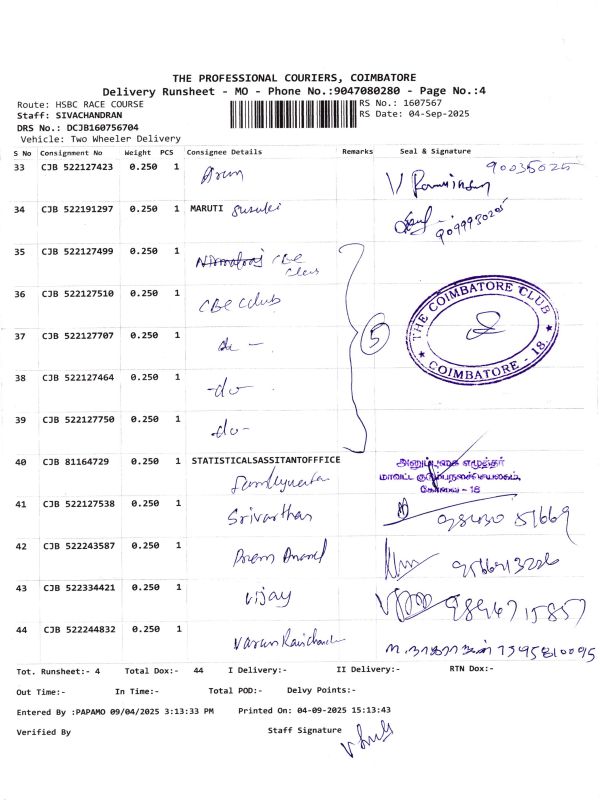 THE PROFESSIONAL COURIERS, COIMBATORE
Delivery Runsheet - MO - Phone No.:9047080280 - Page No.:4
Route: HSBC RACE COURSE RS No.: 1607567
Staff: SIVACHANDRAN RS Date: 04-Sep-2025
DRS No.: DCJB160756704
Vehicle: Two Wheeler Delivery
S No Consignment No Weight PCS Consignee Details Remarks Seal & Signature
33 CJB 522127423 0.250 1 Arun 90035025
34 CJB 522191297 0.250 1 MARUTI Susuki
35 CJB 522127499 0.250 1 CBE
Club
36 CJB 522127510 0.250 1 CBE Club
5
THE COIMBATORE CLUB
COIMBATORE - 18.
37 CJB 522127707 0.250 1 do -
38 CJB 522127464 0.250 1 -do-
39 CJB 522127750 0.250 1 -do-
40 CJB 81164729 0.250 1 STATISTICALSASSITANTOFFFICE
கோவை - 18
41 CJB 522127538 0.250 1 Srivarthan 98430 51669
42 CJB 522243587 0.250 1 Prem Anand
43 CJB 522334421 0.250 1 Vijay 9894715857
44 CJB 522244832 0.250 1 Varun Ravichandran 7395810095
Tot. Runsheet:- 4 Total Dox:- 44 I Delivery:- II Delivery:- RTN Dox:-
Out Time:- In Time:- Total POD:- Delvy Points:-
Entered By :PAPAMO 09/04/2025 3:13:33 PM Printed On: 04-09-2025 15:13:43
Verified By Staff Signature